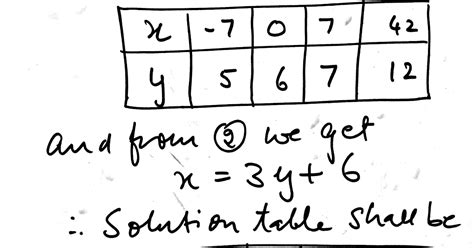 x -7 0 7 42
y 5 6 7 12
and from ② we get
x = 3y + 6
∴ Solution table shall be